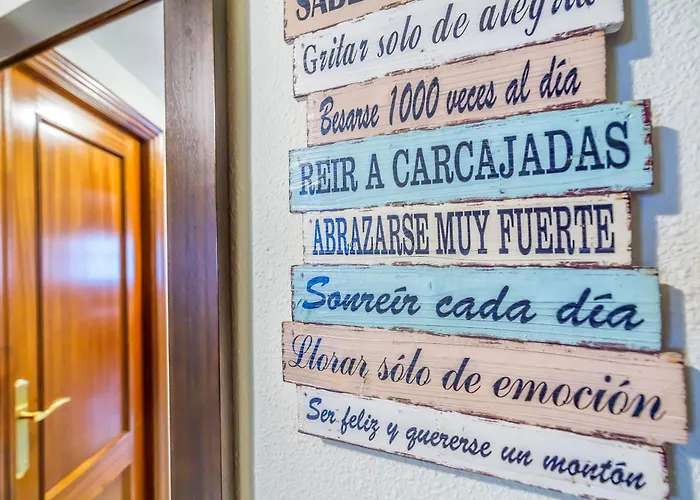 Gritar solo de alegría
Besarse 1000 veces al día
REIR A CARCAJADAS
ABRAZARSE MUY FUERTE
Sonreír cada día
Llorar sólo de emoción
Ser feliz y quererse un montón